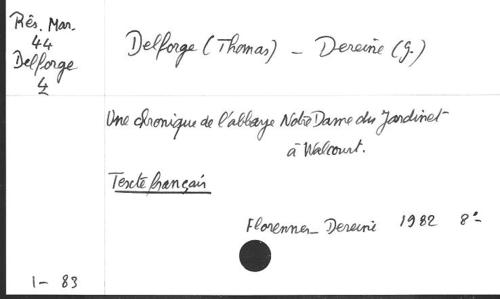 Rés. Mar.
44
Delforge
4
Delforge (Thomas) - Dereine (G.)
Une chronique de l'abbaye Notre Dame du Jardinet
à Walcourt.
Texte français
Florennes - Dereine 1982 8°-
1- 83